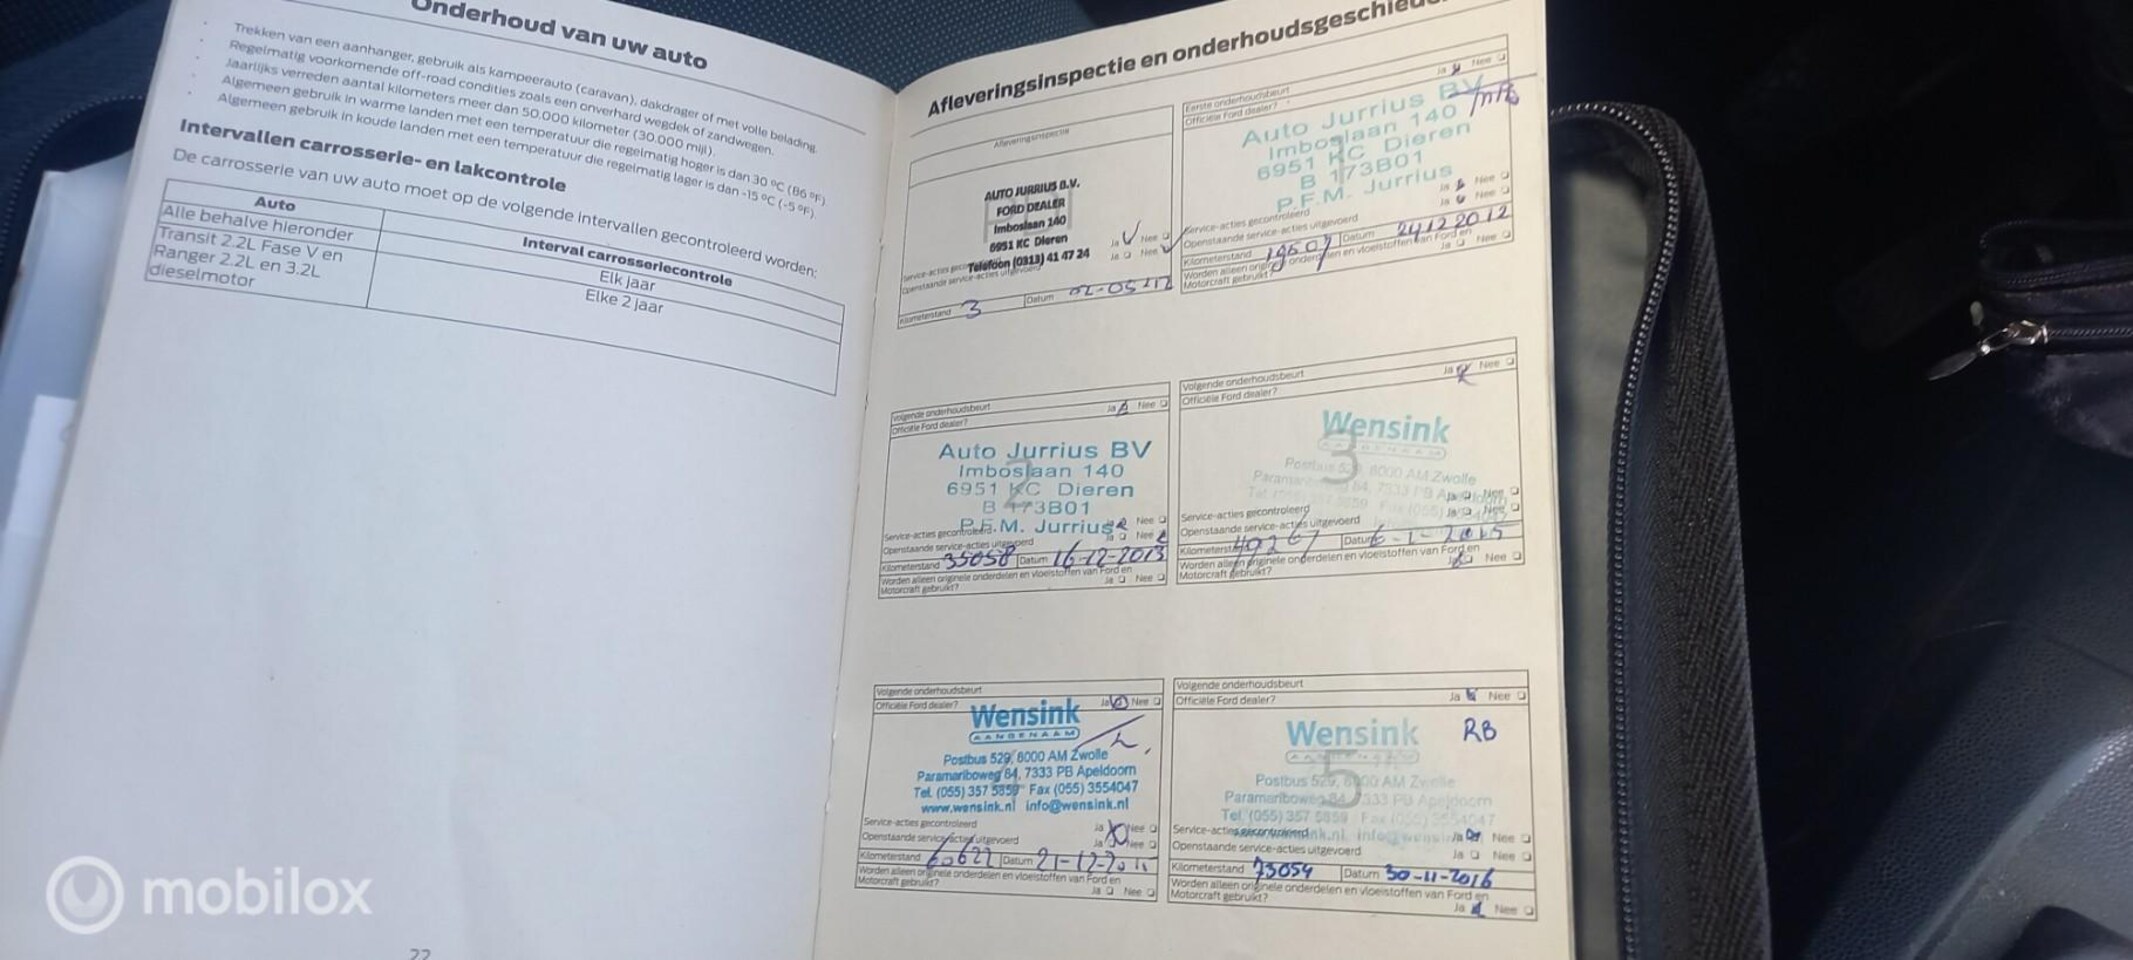 Onderhoud van uw auto
Trekken van een aanhanger, gebruik als kampeerauto (caravan), dakdrager of met volle belading.
Regelmatig voorkomende off-road condities zoals een onverhard wegdek of zandwegen.
Jaarlijks verreden aantal kilometers meer dan 50.000 kilometer (30.000 mijl).
Algemeen gebruik in warme landen met een temperatuur die regelmatig hoger is dan 30 ºC (86 ºF).
Algemeen gebruik in koude landen met een temperatuur die regelmatig lager is dan -15 ºC (-5 ºF).
Intervallen carrosserie- en lakcontrole
De carrosserie van uw auto moet op de volgende intervallen gecontroleerd worden:
Auto
Interval carrosseriecontrole
Alle behalve hieronder
Elk jaar
Transit 2.2L Fase V en
Ranger 2.2L en 3.2L
dieselmotor
Elke 2 jaar
22
Afleveringsinspectie en
Afleveringsinspectie
AUTO JURRIUS B.V.
FORD DEALER
Imboslaan 140
6951 KC Dieren
Telefoon (0313) 41 47 24
Ja Nee
Ja Nee
Kilometerstand 3 Datum 02-05-12
Eerste onderhoudsbeurt
Officiële Ford dealer? Ja Nee
Auto Jurrius BV
Imboslaan 140
6951 KC Dieren
B 173B01
P.F.M. Jurrius
Service-acties gecontroleerd Ja Nee
Openstaande service-acties uitgevoerd Ja Nee
Kilometerstand 19507 Datum 24122012
Worden alleen originele onderdelen en vloeistoffen van Ford en
Motorcraft gebruikt? Ja Nee
Volgende onderhoudsbeurt
Officiële Ford dealer? Ja Nee
2
Auto Jurrius BV
Imboslaan 140
6951 KC Dieren
B 173B01
P.F.M. Jurrius
Service-acties gecontroleerd Ja Nee
Openstaande service-acties uitgevoerd Ja Nee
Kilometerstand 35058 Datum 16-12-2013
Worden alleen originele onderdelen en vloeistoffen van Ford en
Motorcraft gebruikt? Ja Nee
Volgende onderhoudsbeurt
Officiële Ford dealer? Ja Nee
3
Wensink
Postbus 529, 8000 AM Zwolle
Service-acties gecontroleerd Ja Nee
Openstaande service-acties uitgevoerd Ja Nee
Kilometerstand 49267 Datum 6-1-2015
Worden alleen originele onderdelen en vloeistoffen van Ford en
Motorcraft gebruikt? Ja Nee
Volgende onderhoudsbeurt
Officiële Ford dealer? Ja Nee
Wensink
AANGENAAM
Postbus 529, 8000 AM Zwolle
Paramariboweg 84, 7333 PB Apeldoorn
Tel. (055) 357 5859 Fax (055) 3554047
www.wensink.nl info@wensink.nl
Service-acties gecontroleerd Ja Nee
Openstaande service-acties uitgevoerd Ja Nee
Kilometerstand 60622 Datum
Worden alleen originele onderdelen en vloeistoffen van Ford en
Motorcraft gebruikt? Ja Nee
Volgende onderhoudsbeurt
Officiële Ford dealer? Ja Nee
5
Wensink
RB
Postbus 529, 8000 AM Zwolle
Paramariboweg 84, 7333 PB Apeldoorn
Tel. (055) 357 5859 Fax (055) 3554047
Service-acties gecontroleerd Ja Nee
Openstaande service-acties uitgevoerd Ja Nee
Kilometerstand 73054 Datum 30-11-2016
Worden alleen originele onderdelen en vloeistoffen van Ford en
Motorcraft gebruikt? Ja Nee
mobilox